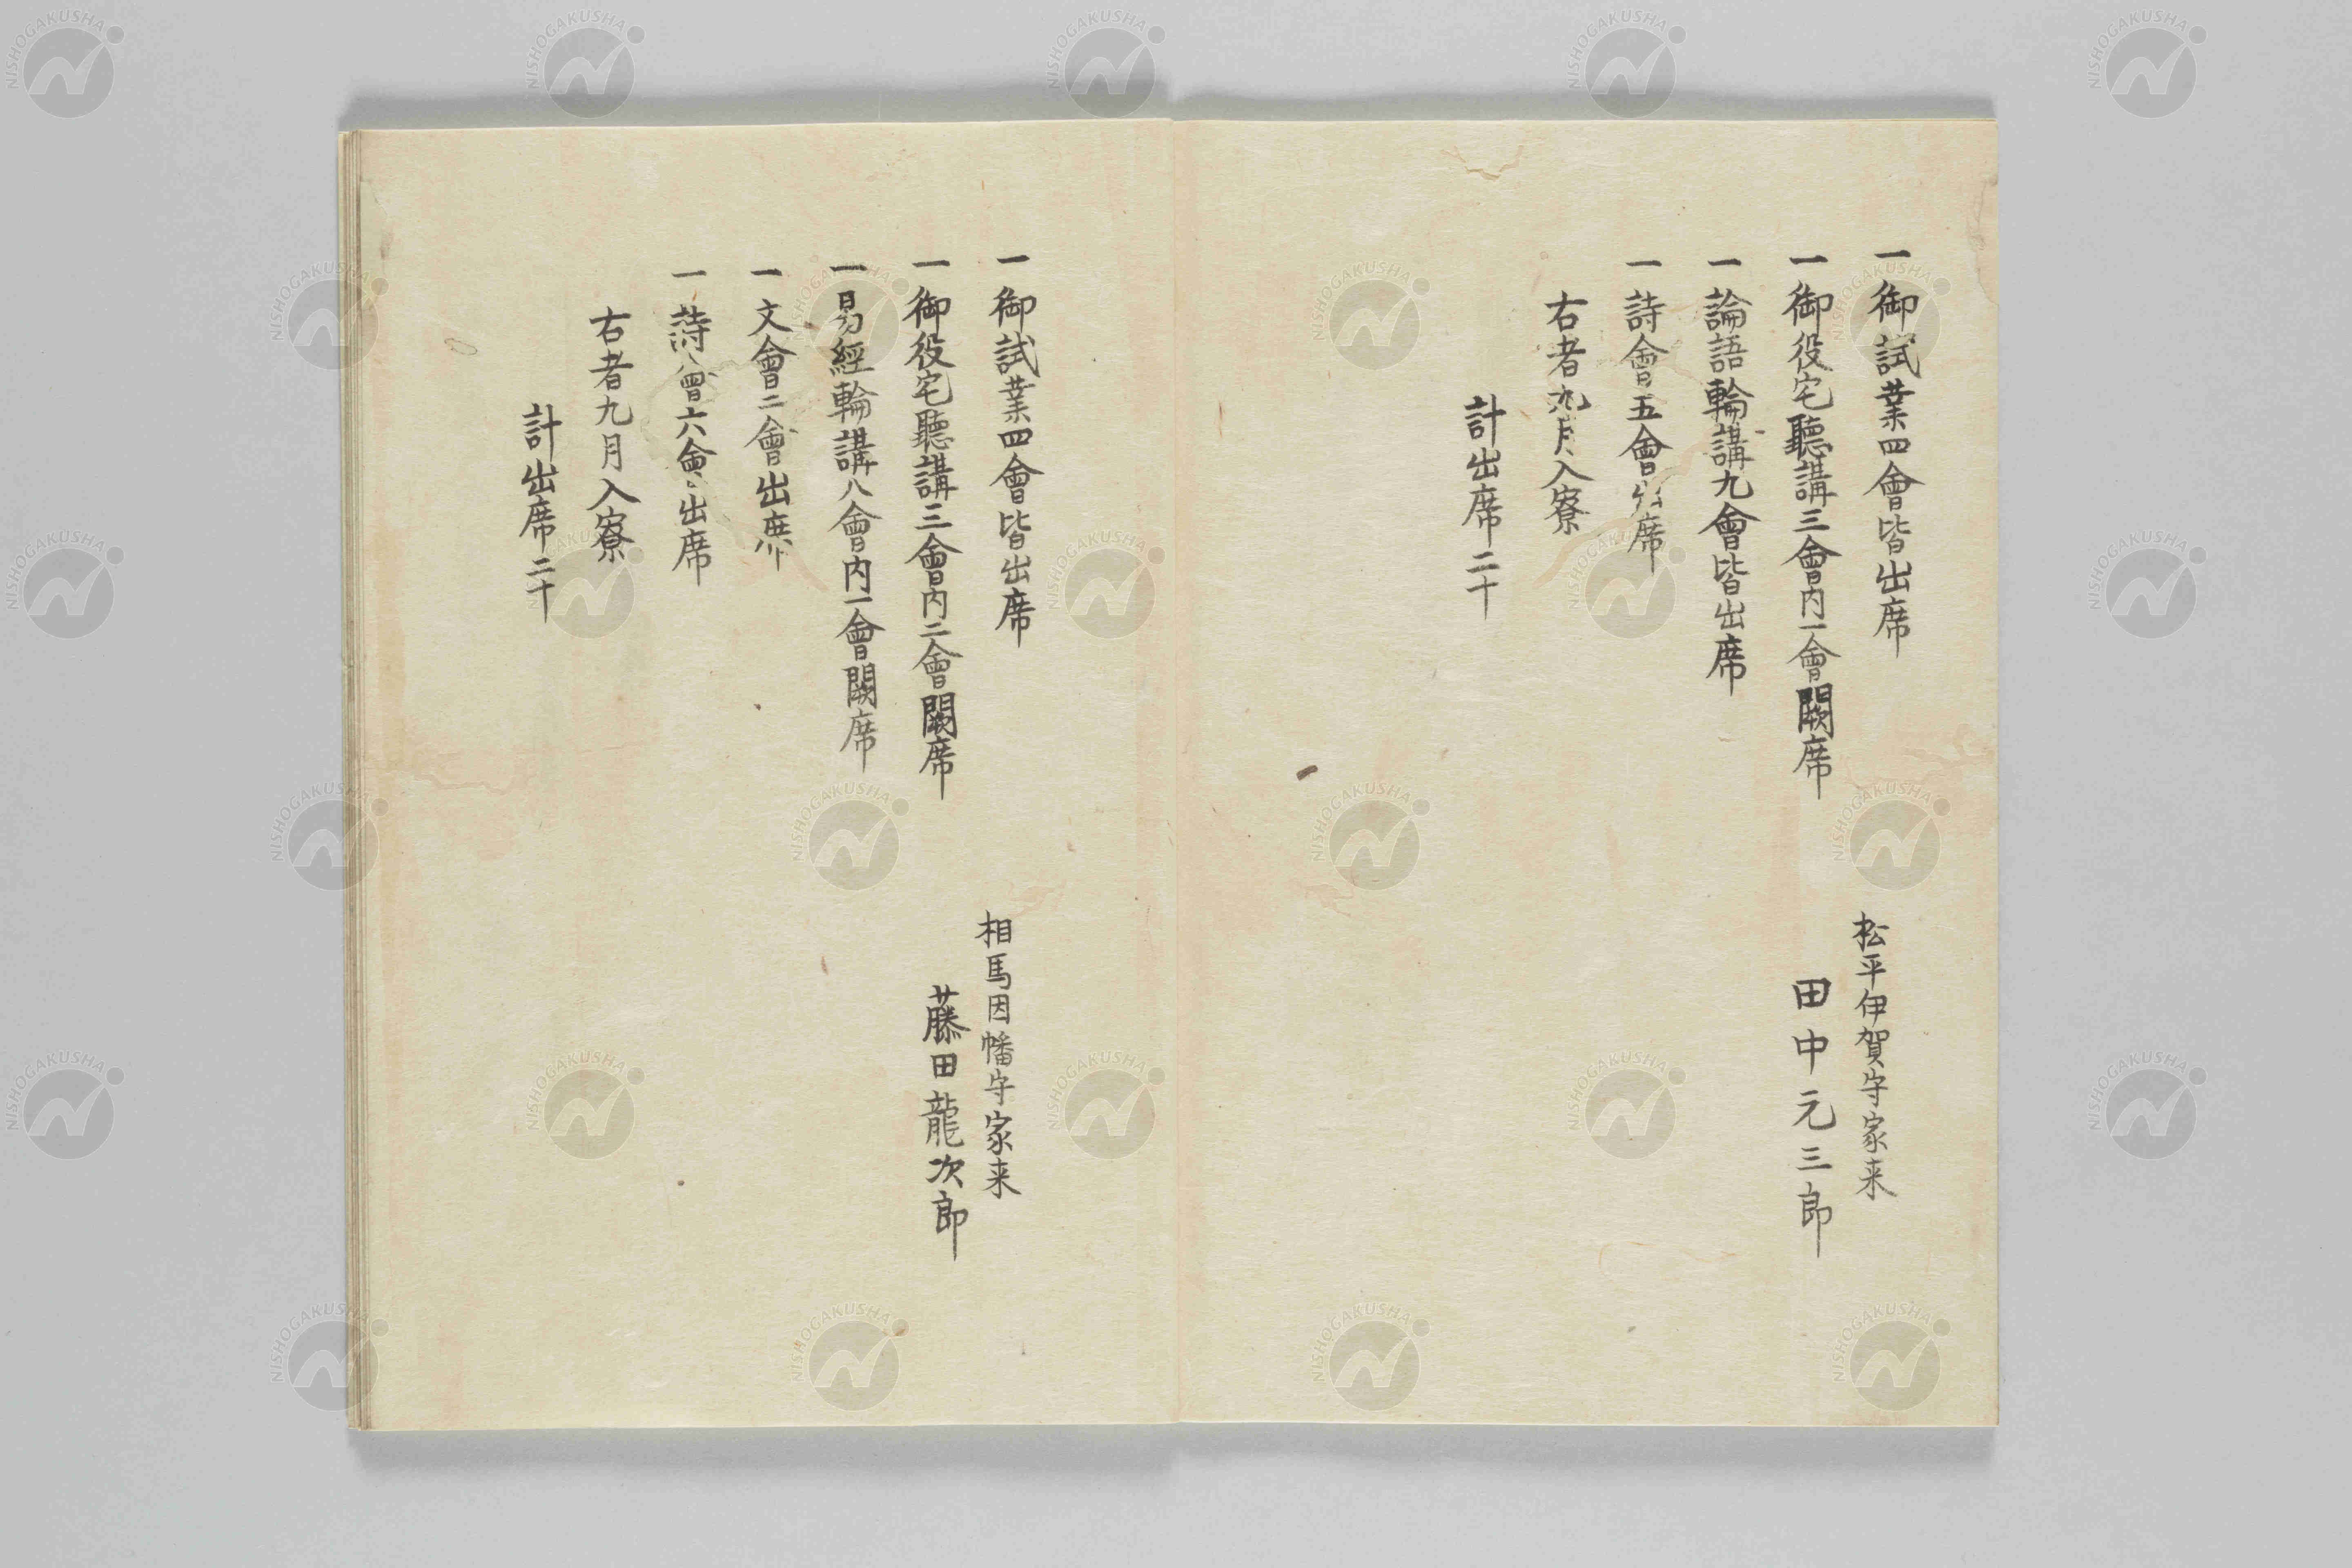 一御試業四會皆出席
一御役宅聽講三會内一會闕席
一論語輪講九會皆出席
一詩會五會出席
右者九月入寮
計出席二十
松平伊賀守家来
田中元三郎
一御試業四會皆出席
一御役宅聽講三會内二會闕席
一易經輪講八會内一會闕席
一文會二會出席
一詩會六會出席
右者九月入寮
計出席二十
相馬因幡守家来
藤田龍次郎
NISHOGAKUSHA